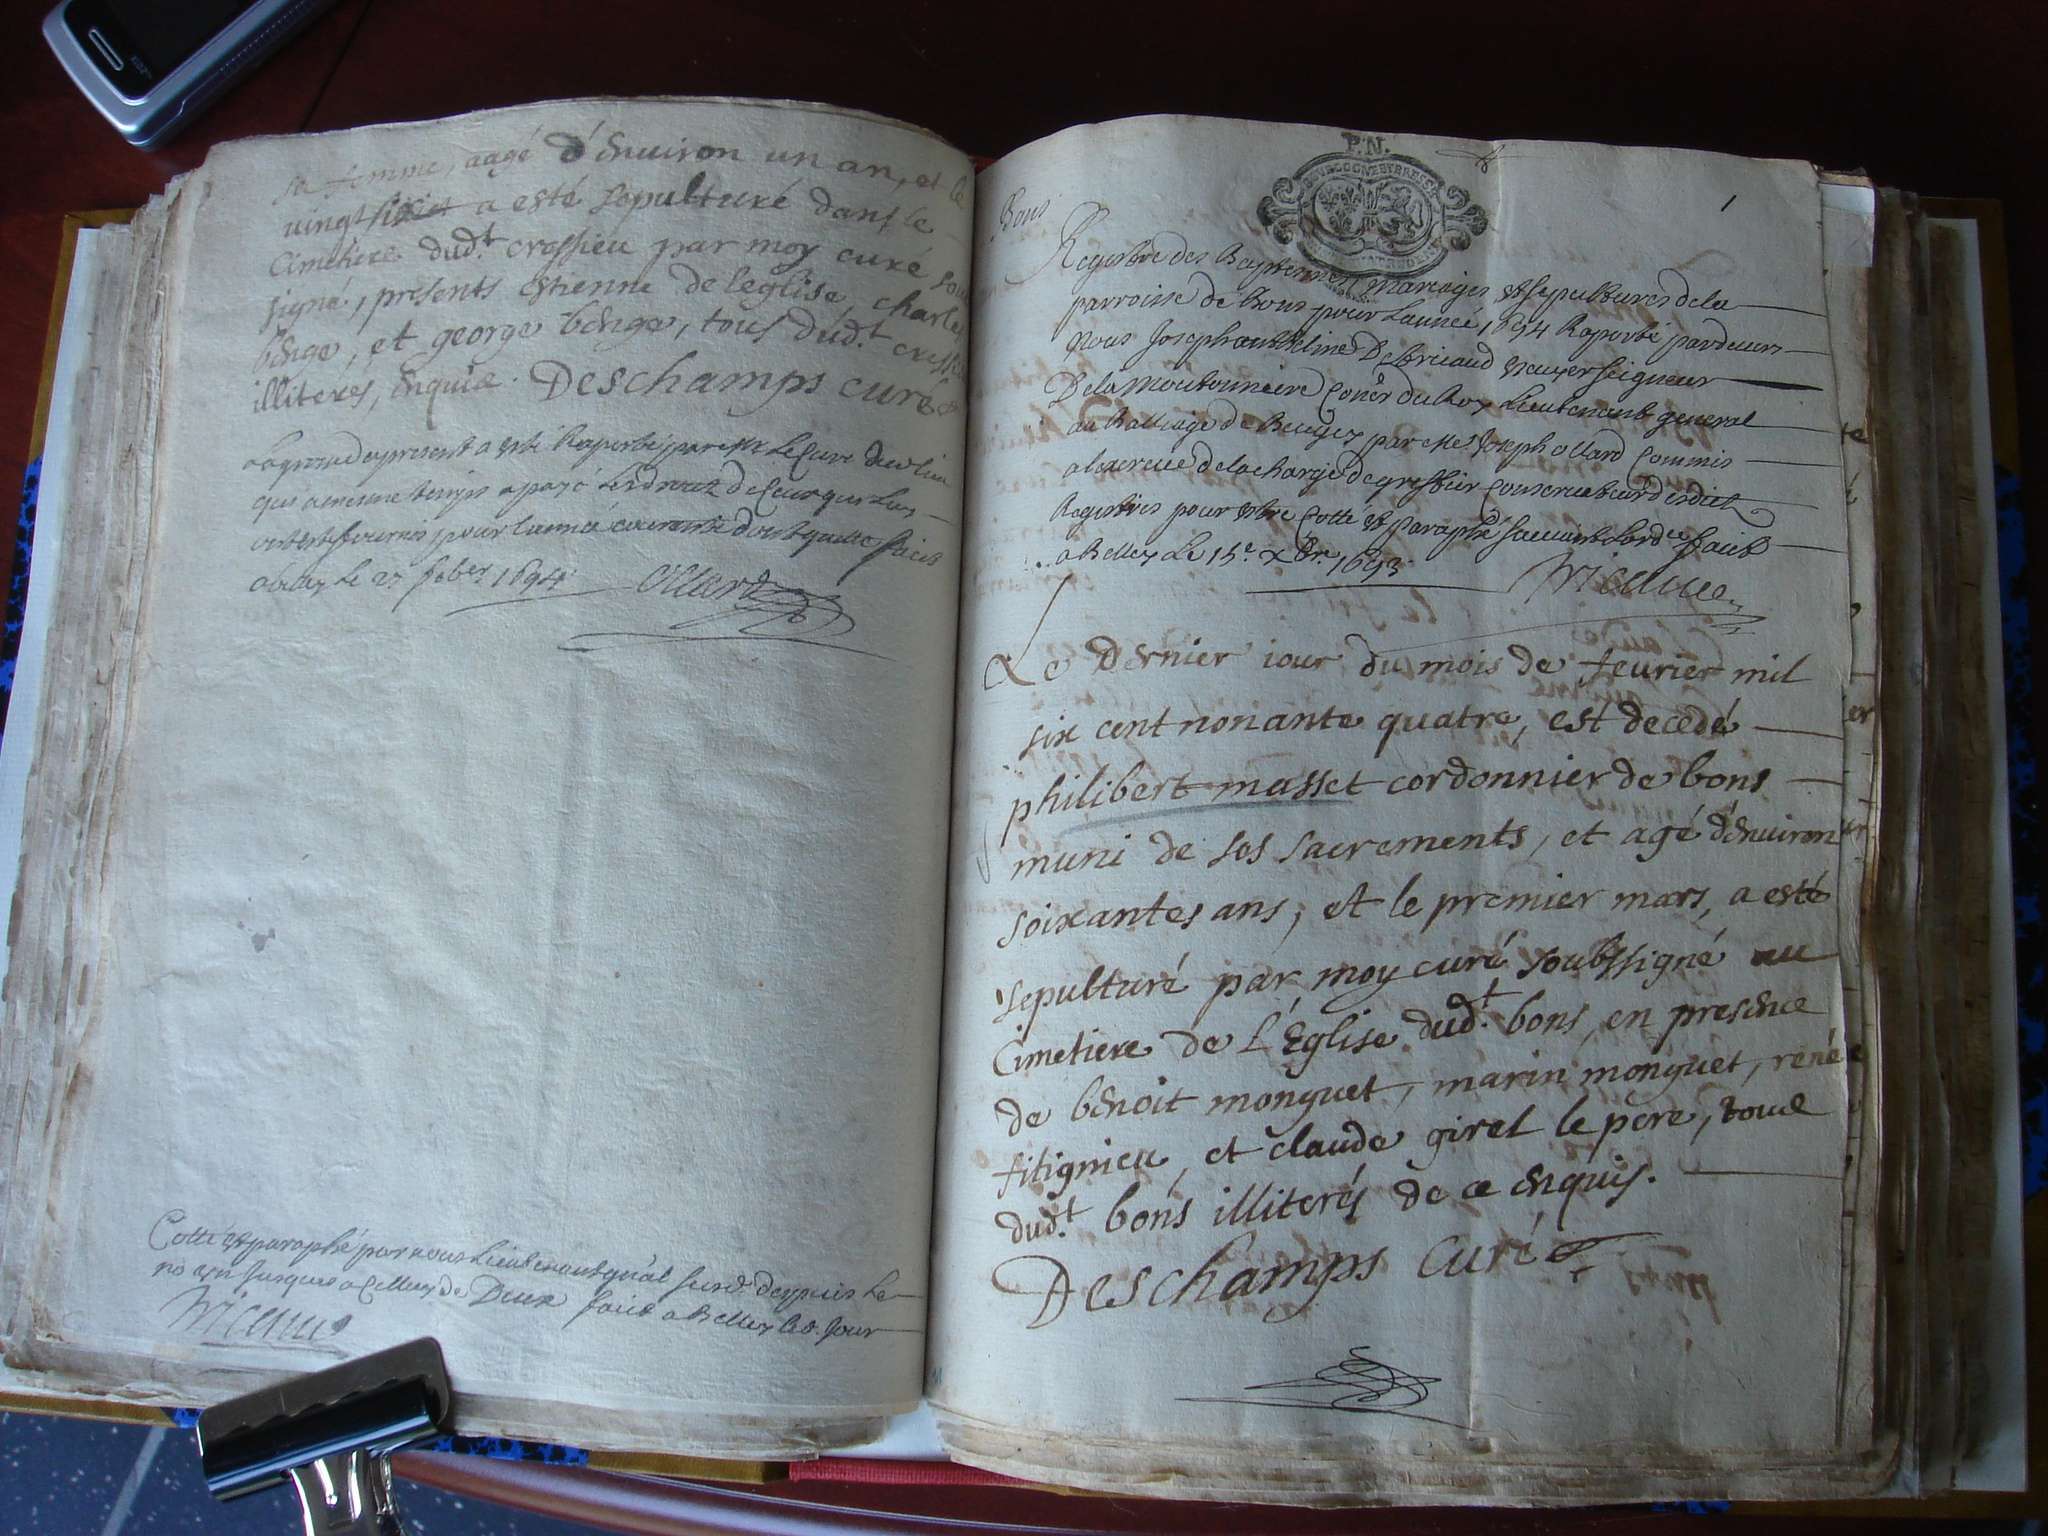 sa femme, aagé d'enuiron un an, et le
uingt six a esté sepulturé dans le
Cimetiere dud.t crossieu par moy curé sou
signé, presents estienne de leglise, charles
berge, et george berge, tous dud.t
illiteres, enquis. Deschamps curé
present a esté Raporté par Mr Le Curé dud lieu
qui a mesme temps a payé Les droitz de Ceux qui Luy
ont esté fournis pour l'année courante dont quitte faict
a belley le 27 feb.er 1694 Ollard
Cotté et paraphé par nous Lieutenant gnal susd. depuis le
jusques a Celluy de Deux faict a Belley led. Jour
P.N.
BOURGOGNE ET BRESSE
1
Bons
Regestre des Baptemes mariages et sepultures de la
parroisse de bons pour Lannée 1694 Raporté pardeuers
Nous Joseph Anthelme De Seigneur
De la Moutonniere Con.er du Roy Lieutenant general
au Balliage de Beugey par Me Joseph ollard Commis
a lexercice de la charge de greffier Conseruateur desdict
Registres pour estre Cotté et paraphé suiuant Lord.ce faict
a Belley Le 15.e xbr. 1693
Le dernier iour du mois de feurier mil
six cent nonante quatre, est decedé
philibert masset cordonnier de bons
muni de ses sacrements, et agé d'enuiron
soixantes ans, et le premier mars, a esté
sepulturé par moy curé soubssigné au
Cimetiere de L'Eglise dud.t bons, en presence
de benoit monguet, marin monguet, rené
fitignieu, et claude girel le pere, tous
dud.t bons illiterés de ce enquis.
Deschamps curé